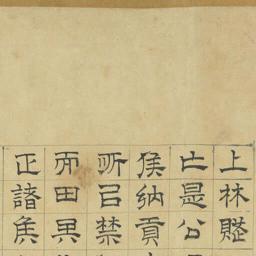 上林賦
亡是公
侯納貢
所以禁
而田其
正諸侯